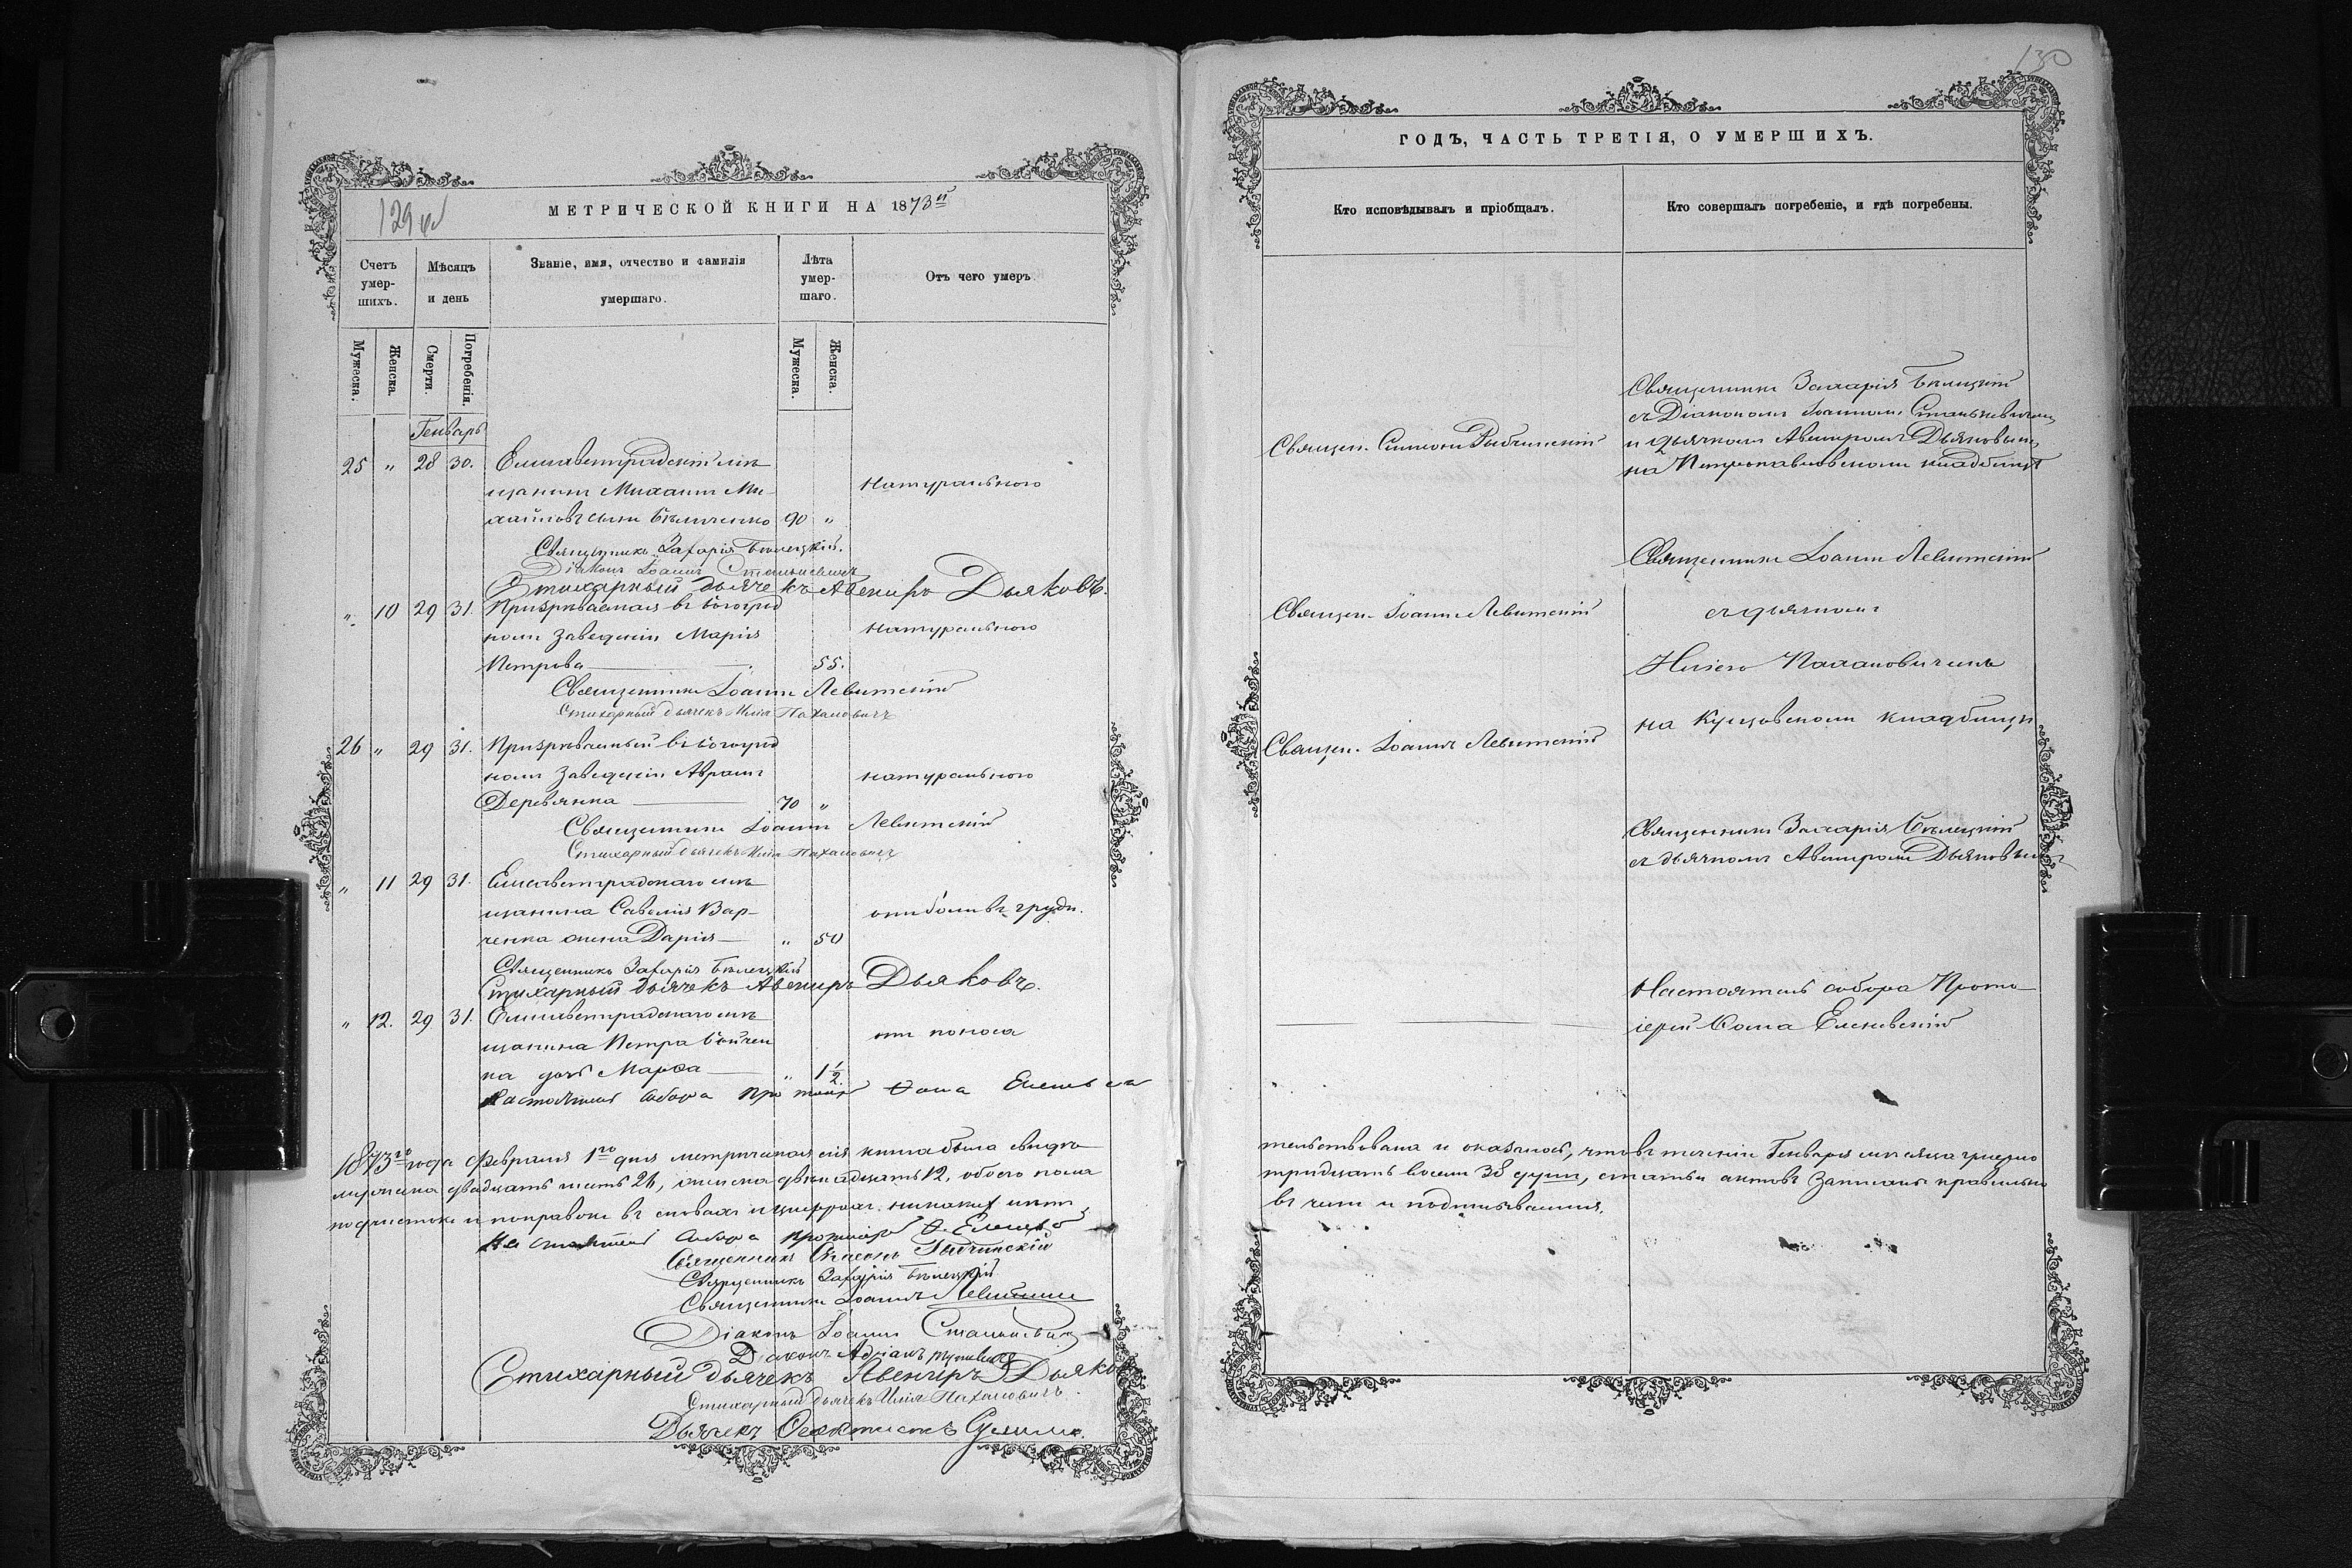 129 об
МЕТРИЧЕСКОЙ КНИГИ НА 1873й
Счетъ умер-шихъ.
Мѣсяцъ и день
Званіе, имя, отчество и фамилія умершаго.
Лѣта умер-шаго.
Отъ чего умеръ
Мужеска.
Женска.
Смерти.
Погребенія.
Мужеска.
Женска.
Генварь
25 " 28 30. Елисаветградскій мѣ-
щанинъ Михаилъ Ми-
хайловъ сынъ Бѣличенко 90 "
натурального
Священникъ Захарія Бѣлецкій.
Діаконъ Іоаннъ Станкевичъ
Стихарный дьячекъ Авениръ Дьяковъ.
" 10 29 31. Призрѣваемая въ богоугод
номъ заведеніи Марія
Петрова 55.
натурального
Священникъ Іоаннъ Левитскій
Стихарный дьячекъ Илія Пахановичъ
26 " 29 31. Призрѣваемый въ богоугод
номъ заведеніи Авраамъ
Деревянка 70 "
натурального
Священникъ Іоаннъ Левитскій
Стихарный дьячекъ Илія Пахановичъ
" 11 29 31. Елисаветградскаго мѣ
щанина Савелія Вар-
ченка жена Дарія " 50
отъ боли въ груди.
Священникъ Захарія Бѣлецкій
Стихарный дьячекъ Авениръ Дьяковъ.
" 12. 29 31. Елисаветградскаго мѣ
щанина Петра Бойчен
ка дочь Марѳа " 1 1/2
отъ поноса
Настоятель собора протоіер Ѳома
1873го года Февраля 1го дня метрическая сія книга была свидѣ-
мужеска двадцать шесть 26, женска двѣнадцать 12, обоего пола
подчистокъ и поправокъ въ словахъ и цифрахъ никакихъ нѣтъ,
Настоятель собора протоіер Ѳ.
Священникъ Симеонъ
Священникъ Захарія Бѣлецкій
Священникъ Іоаннъ Левитскій
Діаконъ Іоаннъ Станкевичъ
Діаконъ Адріанъ
Стихарный дьячекъ Авениръ Дьяковъ
Стихарный дьячекъ Илія Пахановичъ.
Дьячекъ Ѳеоктистъ
130
ГОДЪ, ЧАСТЬ ТРЕТІЯ, О УМЕРШИХЪ.
Кто исповѣдывалъ и пріобщалъ.
Кто совершалъ погребеніе, и гдѣ погребены.
Священ. Симеонъ
Священникъ Захарія Бѣлецкій
съ Діакономъ Іоанномъ Станкевичемъ
и дьячкомъ Авениромъ Дьяковымъ,
на Петропавловскомъ кладбищѣ
Священ. Іоаннъ Левитскій
Священникъ Іоаннъ Левитскій
съ дьячкомъ
Иліею Пахановичемъ
на Кущовскомъ кладбищѣ
Священ. Іоаннъ Левитскій
Священникъ Захарія Бѣлецкій
съ дьячкомъ Авениромъ Дьяковымъ
Настоятель собора Прото-
іерей Ѳома
тельствована и оказалось, что въ теченіи Генваря мѣсяца умерло
тридцать восемь 38 душъ, статьи актовъ записаны правильно
въ чемъ и подписываемся.